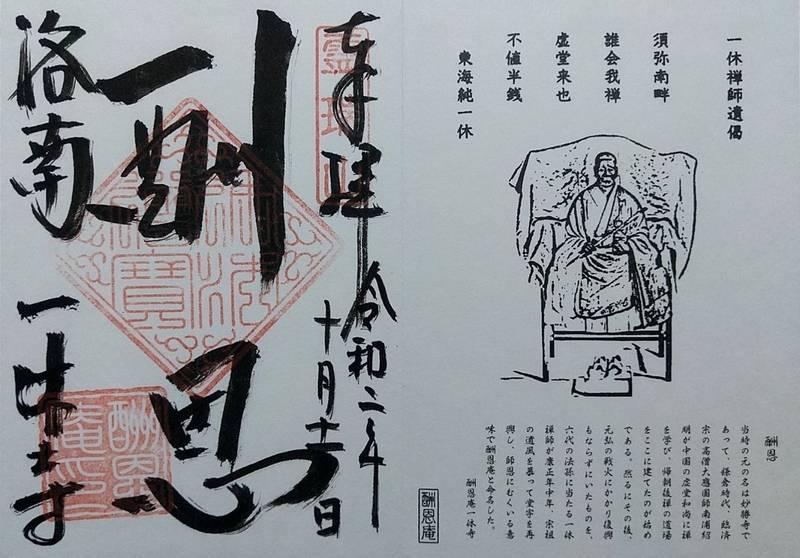 一休禅師遺偈
須弥南畔
誰会我禅
虚堂来也
不値半銭
東海純一休
酬恩
当時の元の名は妙勝寺で
あって、鎌倉時代、臨済
宗の高僧大應国師南浦紹
明が中国の虚堂和尚に禅
を学び、帰朝後禅の道場
をここに建てたのが始め
である。然るにその後、
元弘の戦火にかかり復興
もならずにいたものを、
六代の法孫に当たる一休
禅師が康正年中、宗祖
の遺風を慕って堂宇を再
興し、師恩にむくいる意
味で酬恩庵と命名した。
酬恩庵一休寺
酬恩庵
奉拝
令和二年
十月十一日
酬恩
佛法僧寶
洛南
一休寺
酬恩庵印